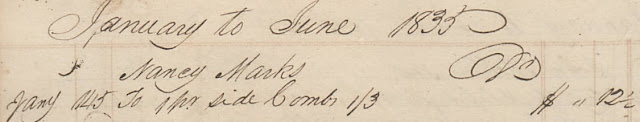 January to June 1835
Nancy Marks Dr
Jany To 1 pr side Combs 1/3 $ " 12½